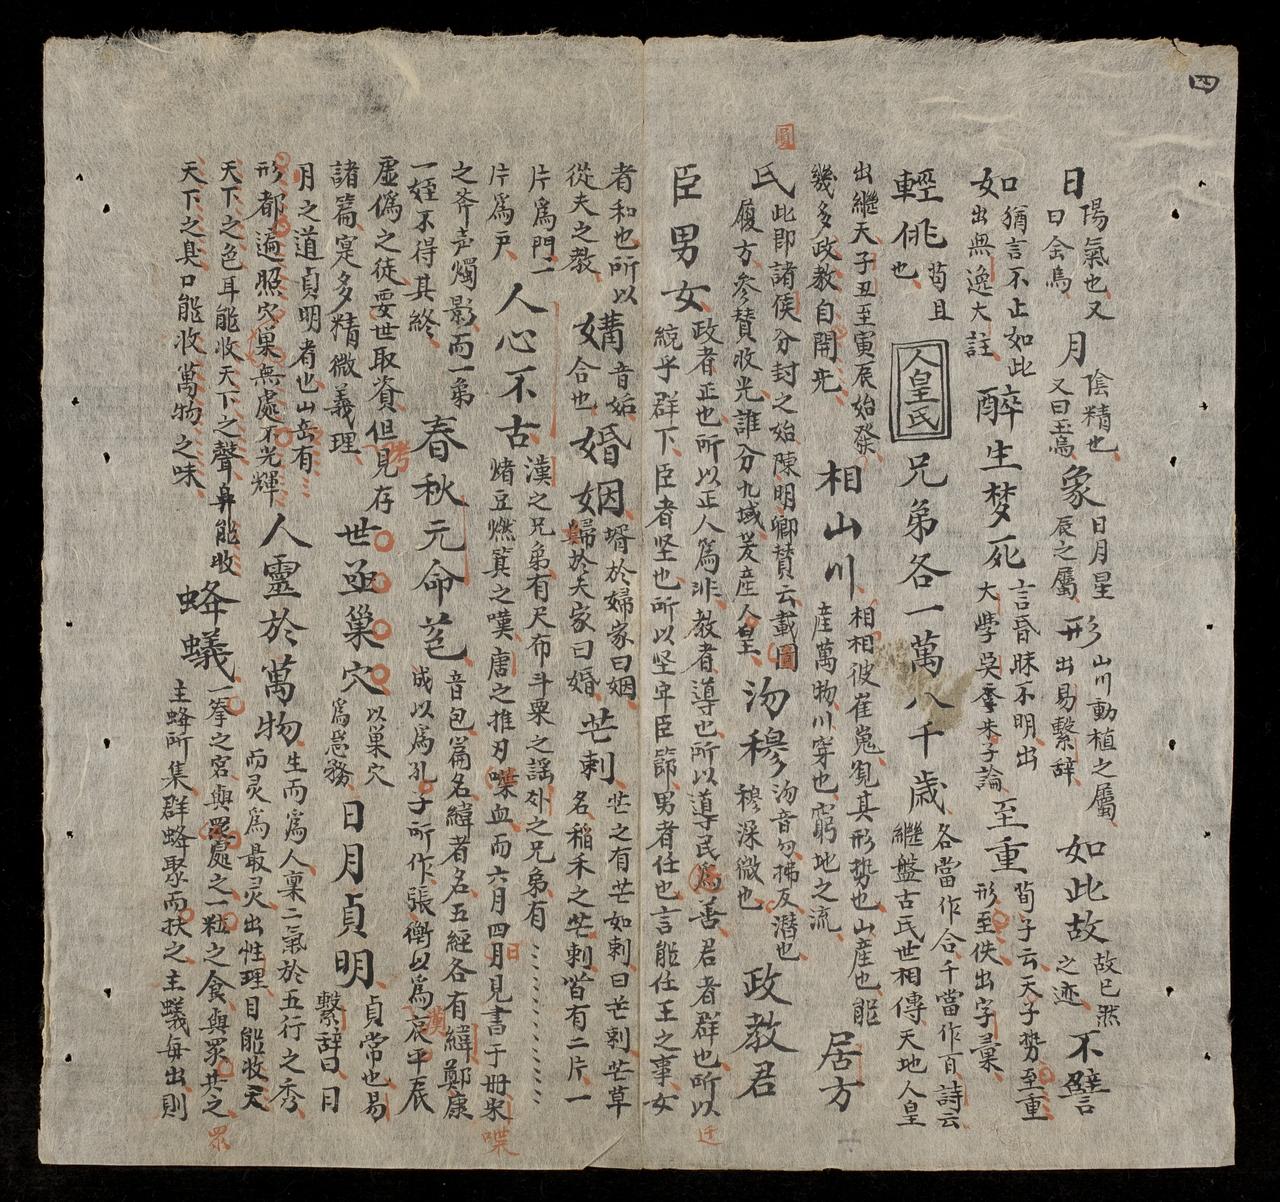 四
日 陽氣也又曰金烏 月 陰精也又曰玉烏 象 日月星辰之屬 形 山川動植之屬出易繫辞 如此故 故已然之迹 不譬
如 猶言不止如此出無逸大註 醉生梦死 言昏昧不明出大學吳季朱子論 至重 荀子云天子勢至重形至佚出字彙
輕佻 苟且也 人皇氏 兄弟各一萬八千歳 各當作合千當作百詩云継盤古氏世相傳天地人皇
出継天子丑至寅辰始發幾多政教自開先 相山川 相相彼崔嵬覧其形勢也山産也能産萬物川穿也窮地之流 居方
氏 此即諸侯分封之始陳明卿賛云載圓履方参賛收光誰分九域爰産人皇 沕穆 沕音勿拂反潜也穆深微也 政教君
圓
臣男女 政者正也所以正人為非教者導也所以導民為善君者群也所以統乎群下臣者坚也所以坚牢臣節男者任也言能任王之事女
迁
者和也所以從夫之教 媾 音姤媾合也 婚姻 壻於婦家曰姻婦於夫家曰婚 芒刺 芒之有芒如刺曰芒刺芒草名稲禾之芒刺皆有二片一
片為門一片為戸 人心不古 漢之兄弟有尺布斗粟之謡外之兄弟有煮豆燃箕之嘆唐之推刃喋血而六月四日見書于冊宋
喋
之斧声燭影而一弟一姪不得其終 春秋元命苞 音包篇名緯者名五經各有緯鄭康成以為孔子所作張衡以為哀平辰
虚偽之徒要世取資但見存諸篇寔多精微義理 世亟巢穴 以巢穴為急務 日月貞明 貞常也易繫辞曰日
月之道貞明者也山岳有形都遍照穴巢無處不光輝 人靈於萬物 生而為人禀二氣於五行之秀而灵為最灵出性理目能收天
天下之色耳能收天下之聲鼻能收天下之臭口能收萬物之味 蜂蟻 一拳之宮與眾處之一粒之食與眾共之主蜂所集群蜂聚而扶之主蟻每出則
眾